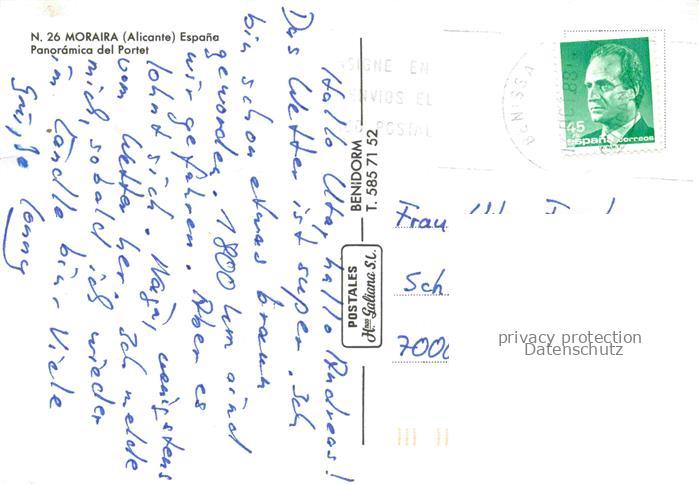 N. 26 MORAIRA (Alicante) España
Panorámica del Portet
Hallo Uta, hallo Andreas!
Das Wetter ist super. Ich
bin schon etwas braun
geworden. 1800 km sind
wir gefahren. Aber es
lohnt sich. Naja, wenigstens
vom Wetter her. Ich melde
mich, sobald ich wieder
im Ländle bin. Viele
Grüße Conny
BENIDORM
T. 585 71 52
POSTALES
Hnos Galiana S.L.
SIGNE EN
ENVIOS EL
POSTAL
BENISSA
45
españa correos
Frau
Sch
7000
privacy protection
Datenschutz